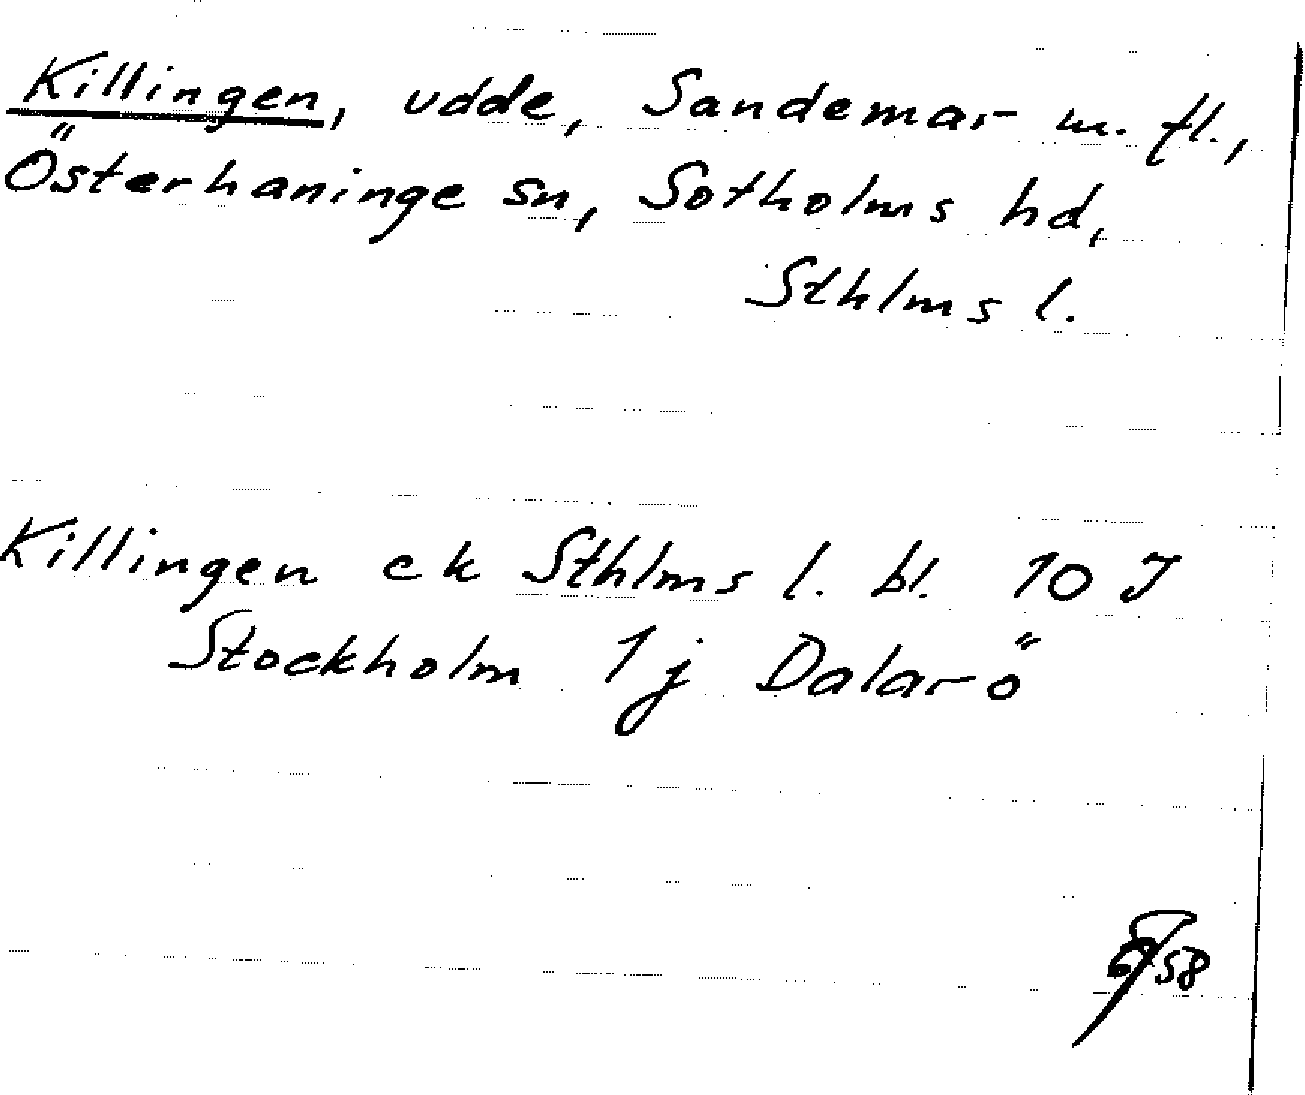 Killingen, udde, Sandemar m. fl.,
Österhaninge sn, Sotholms hd,
Sthlms l.
Killingen ek Sthlms l. bl. 10 J
Stockholm 1 j Dalarö
58